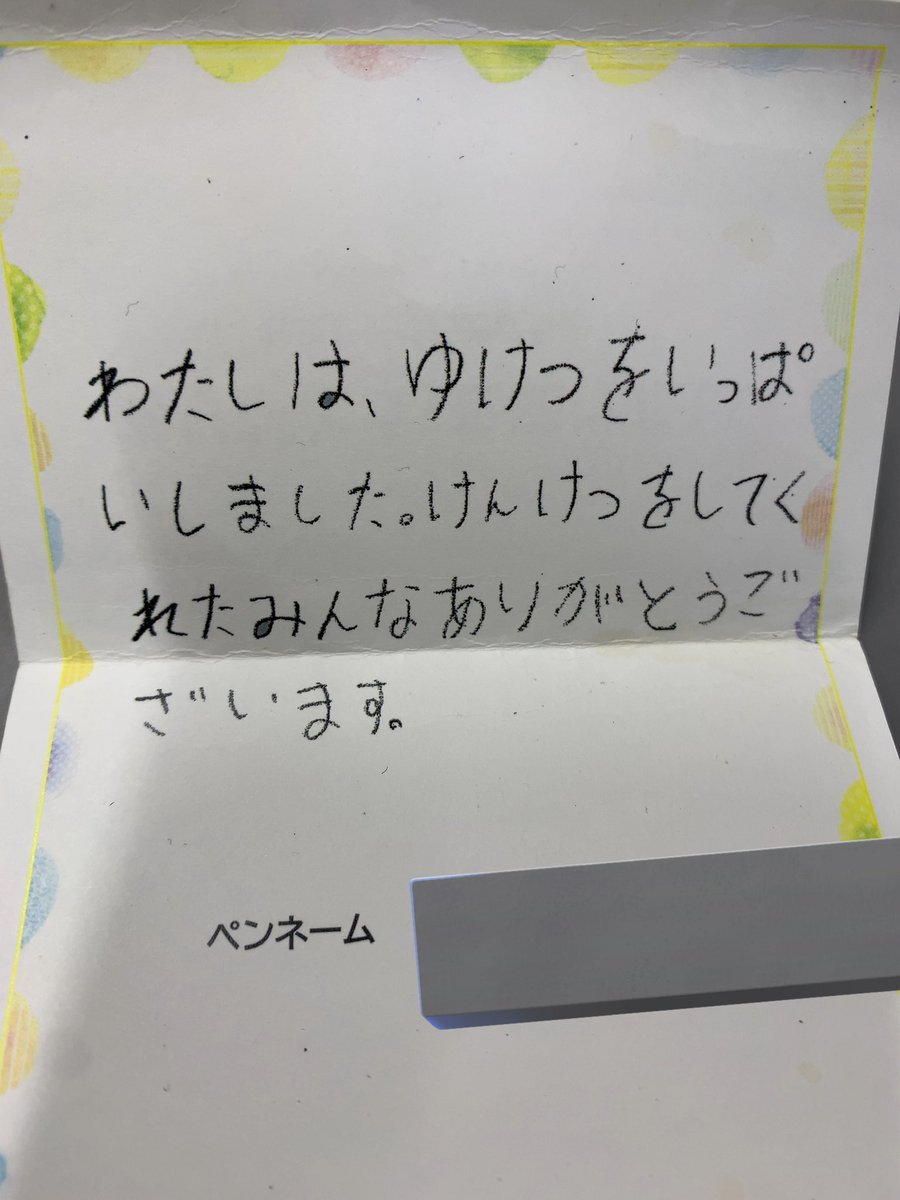 わたしは、ゆけつをいっぱ
いしました。けんけつをしてく
れたみんなありがとうご
ざいます。
ペンネーム